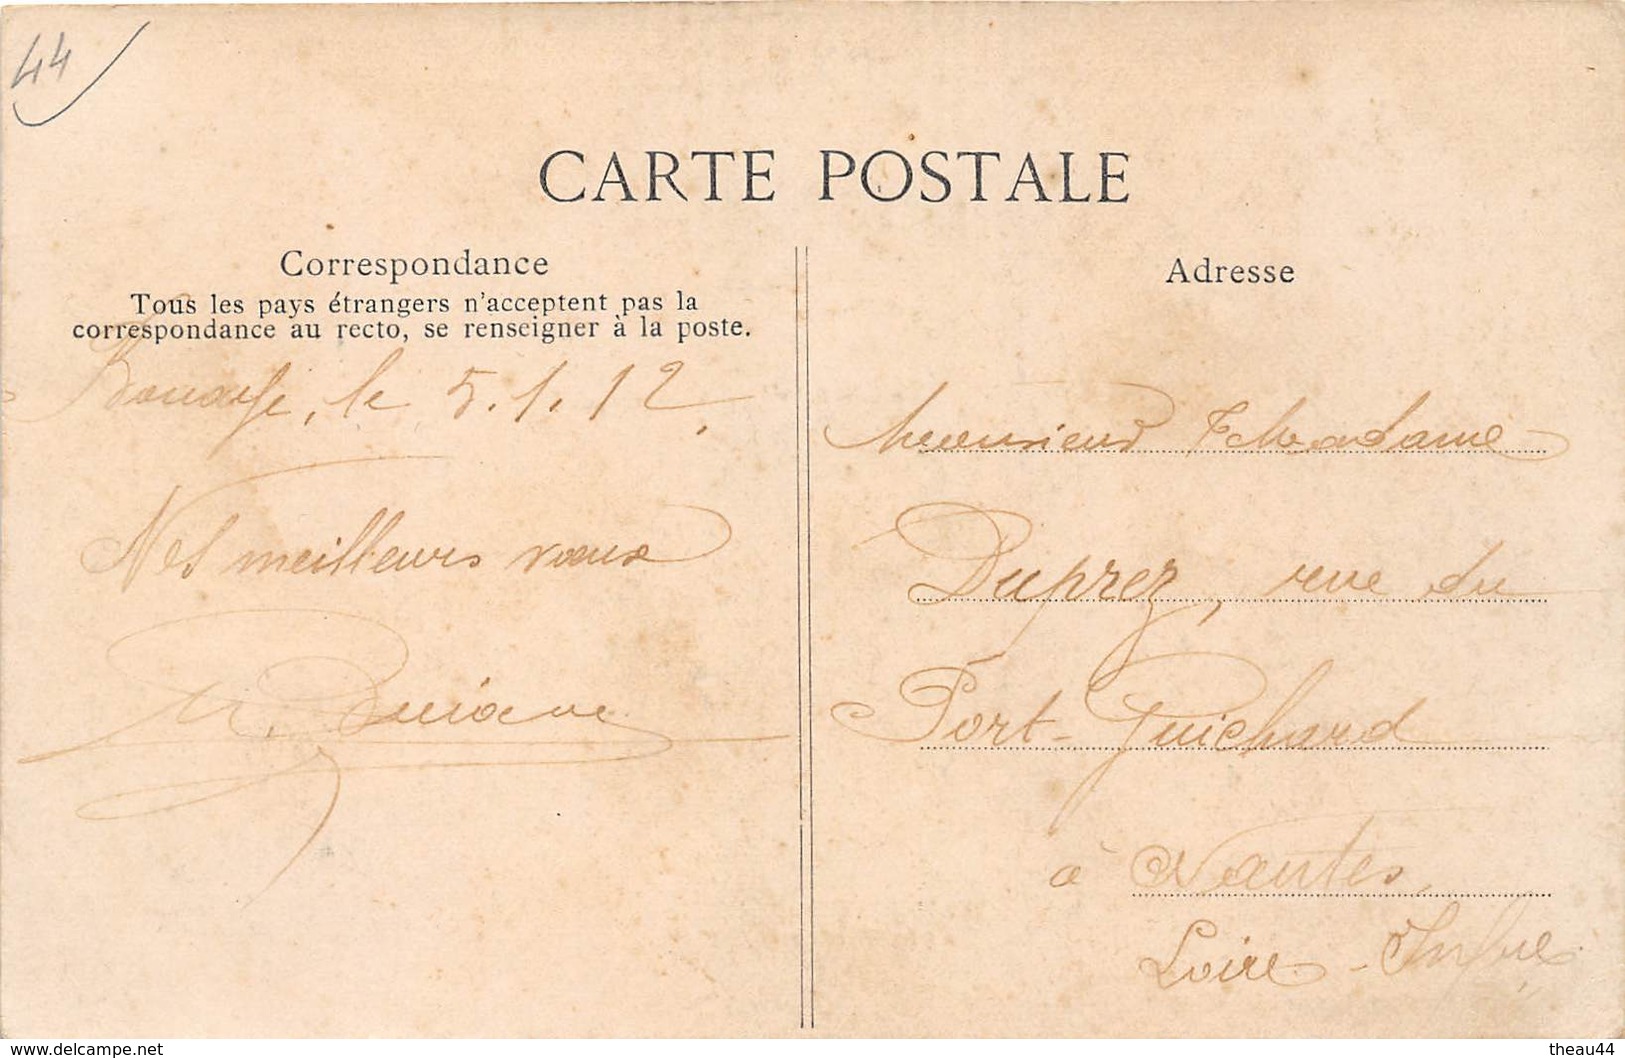 44
CARTE POSTALE
Correspondance
Tous les pays étrangers n'acceptent pas la
correspondance au recto, se renseigner à la poste.
le 5.1.12.
Nos meilleurs vœux
Adresse
Monsieur & Madame
Duprez, rue du
Port-Guichard
à Nantes,
Loire-Infre
www.delcampe.net
theau44